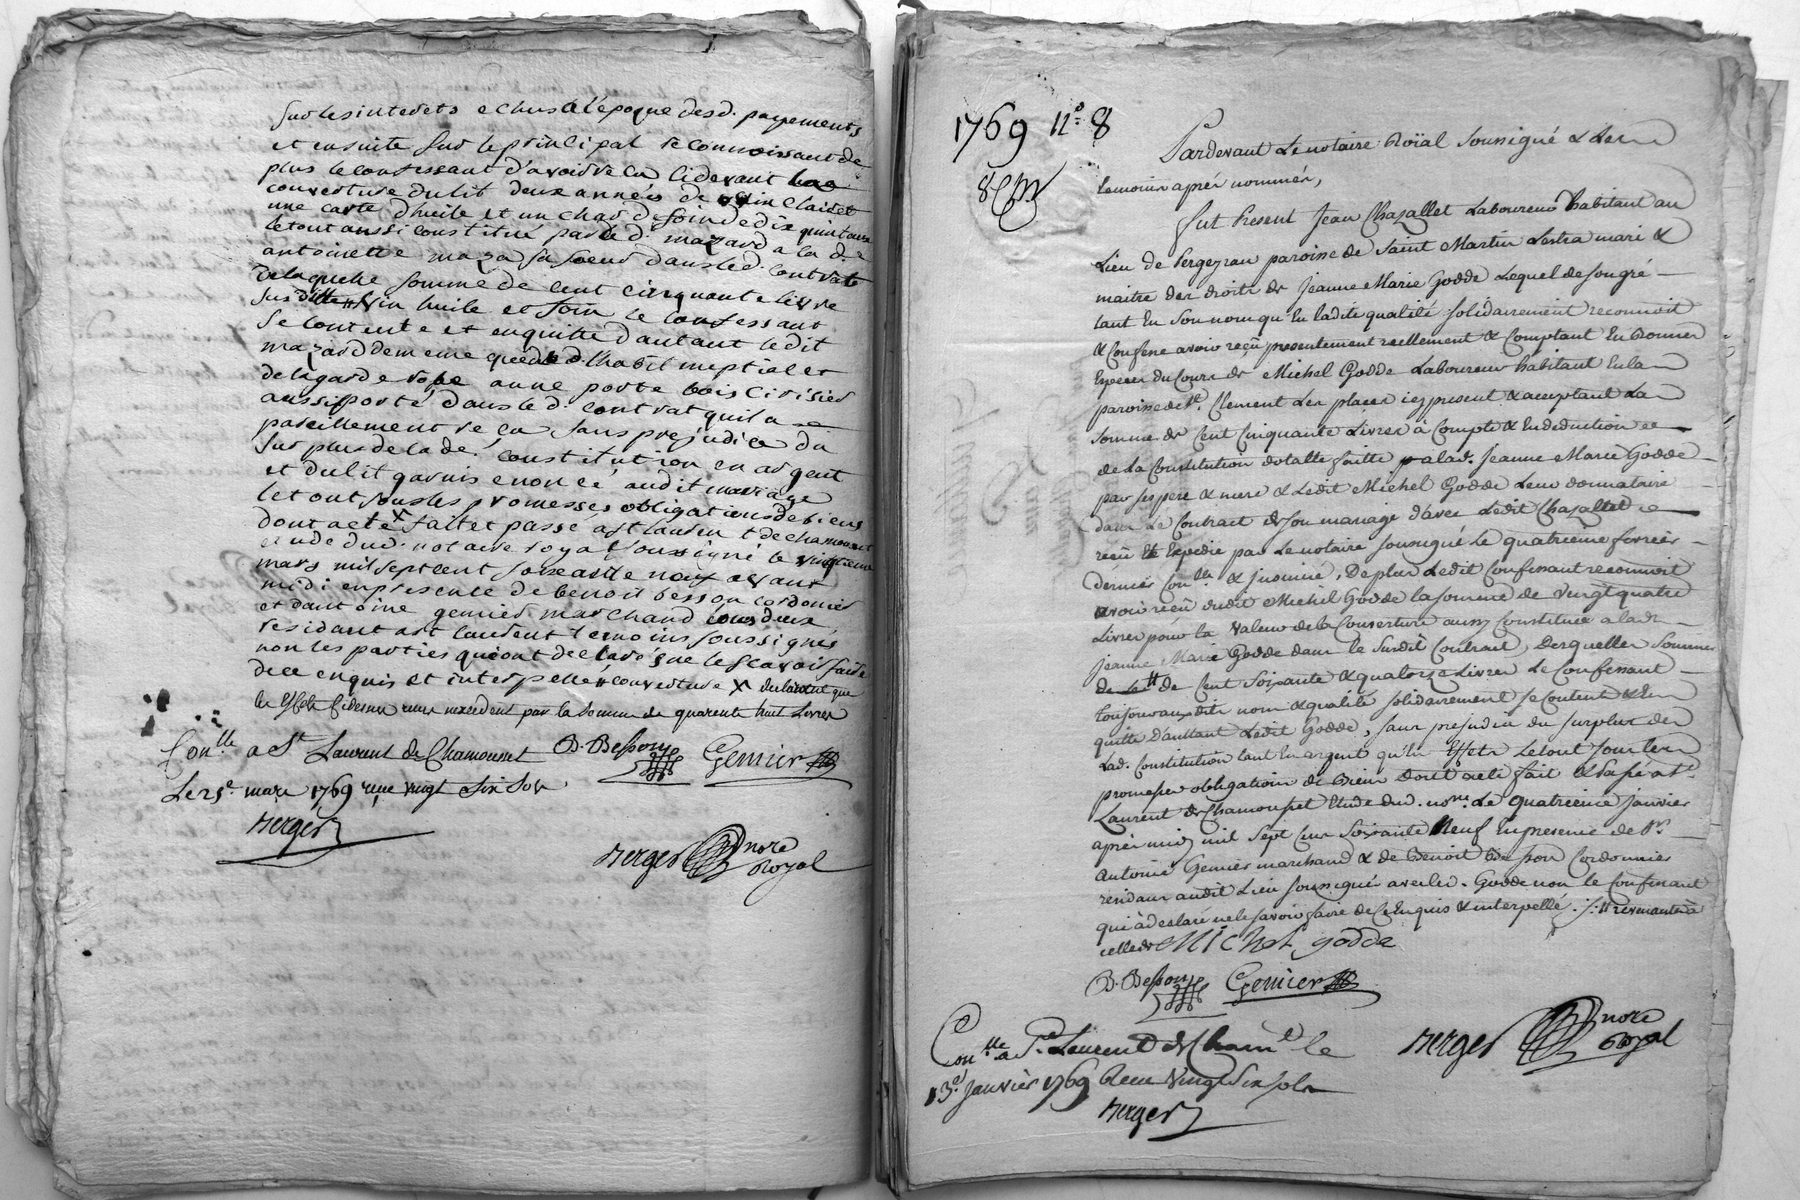 sur les interets echus a l'epoque desd. payements
et ensuite sur le principal reconnoissant de
plus le confessant d'avoir recu cidevant la
couverture du lit deux années de vin clairet
une carte d'huile et un char de foin de dix quintaux
le tout aussi constitué par led. mazard a la d.e
antoinette mazard sa soeur dans led. contrat
de laquelle somme de cent cinquante livre
sus ditte # vin huile et foin le confessant
se contente et en quitte d'autant ledit
mazard de meme que de l'habit nuptial et
de la garde robe a une porte bois cirisier
aussi porté dans le d. contrat qu'il a
pareillement recu sans prejudice du
surplus de la de. constitution en argent
et du lit garnis enoncé audit mariage
le tout sous les promesses obligations de biens
dont acte X fait et passé a st laurent de chamousset
etude dud. notaire royal soussigné le vingtieme
mars mil sept cent soixante neuf avant
midi en presence de benoit besson cordonier
et d'antoine genier marchand tous deux
residant a st laurent temoins soussignés
non les parties qui ont declaré ne le scavoir faire
de ce enquis et interpellé # couverture X declarant que
les effets cidessus recus n'excedent pas la somme de quarente huit livres
B. Besson Genier
Con.lle a St Laurent de Chamousset
Le 25e mars 1769 reçu vingt six sols
Berger
Berger nore
Royal
1769 n.o 8
Pardevant Le notaire Roïal Soussigné & Les
temoins aprés nommés,
fut Present Jean Chazallet Laboureur habitant au
Lieu de Pergeyrau paroisse de Saint Martin Lestra mari &
maitre des droits de Jeanne Marie Godde Lequel de son gré
tant En Son nom qu'En ladite qualité solidairement reconnoit
& Confesse avoir reçu presentement reellement & Comptant En Bonnes
Especes du Cours de Michel Godde Laboureur habitant En la
paroisse de St. Clement Les places icy present & acceptant La
somme de Cent Cinquante Livres à Compte & En deduction
de La Constitution dotalle faitte a lad. Jeanne Marie Godde
par ses pere & mere & Ledit Michel Godde Leur donnataire
dans Le Contrat de son mariage d'avec Ledit Chazallet
reçu & Expedié par Le notaire soussigné Le quatrieme fevrier
dernier Con.lle & insinué, De plus Ledit Confessant reconnoit
avoir reçu dudit Michel Godde la somme de Vingt quatre
Livres pour la valeur de la Couverture aussy Constituée a lad.
Jeanne Marie Godde dans le Susdit Contrat, Desquelles Sommes
# de Cent Soixante & quatorze Livres Le Confessant
toujours auxdits nom & qualité solidairement se Contente & En
quitte d'autant Ledit Godde, sans prejudice du surplus des
Lad. Constitution tant En argent qu'En Effets Le tout sous les
promesses obligations de Biens Dont acte fait & Passé a St.
Laurent de Chamousset Etude dud. nore. Le quatrieme janvier
après midy mil Sept Cens Soixante Neuf En presence de Sr.
Antoine Genier marchand & de Benoit Besson Cordonnier
residans audit Lieu soussignés avec led. Godde non le Confessant
qui à declaré ne le savoir faire de Ce Enquis & interpellé ./. # revenants à
celle de Michel godde
B. Besson Genier
Berger nore
Royal
Con.lle a St. Laurent de Cham.t le
13e Janvier 1769 Reçu Vingt Six sols
Berger